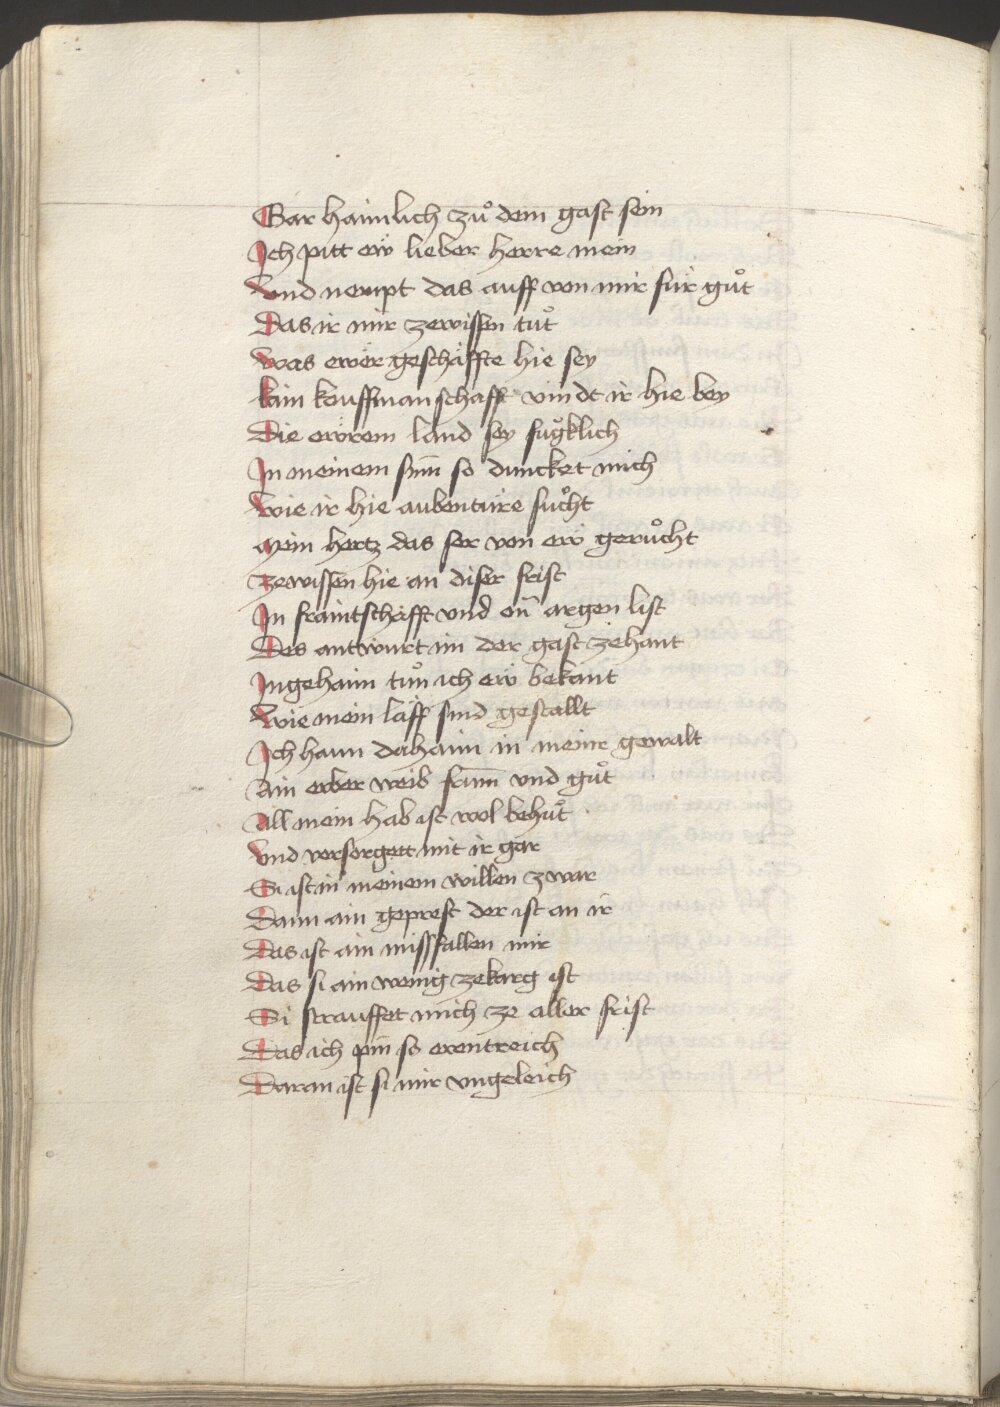 Gar haimlich zů dem gast sein
Ich pitt ew̎ lieber herre mein
Vnd nempt das auff von mir für gůt
Das ir mir zewissen tůt
Was ewër geschäffte hie sey
Kain kouffmanschafft vindt ir hie bey
Die ewrem land sey fůgklich
In meinem sinn so duncket mich
Wie ir hie aubentüre sůcht
Mein hertz das ser von ew̎ gerůcht
Zewissen hie an diser frist
In fraintschäfft vnd on̄ argen list
Des antwürt im der gast zehant
Ingehaim tůn ich ew̎ bekant
Wie mein läff sind gestallt
Ich hann dahaim in meine gewalt
Ain erber weib fram̄ vnd gůt
All mein hab ist wol behůt
Vnd versorgett mit ir gar
Si ist in meinem willen zwar
Dann ain geprest der ist an ir
Das ist ain missfallen mir
Das si ain wenig zekarg ist
Si strauffet mich ze aller frist
Das ich pin so erentreich
Daran ist si mir vngeleich